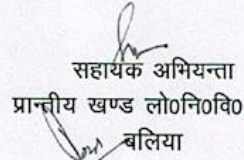 सहायक अभियन्ता
प्रान्तीय खण्ड लो0नि0वि0
बलिया